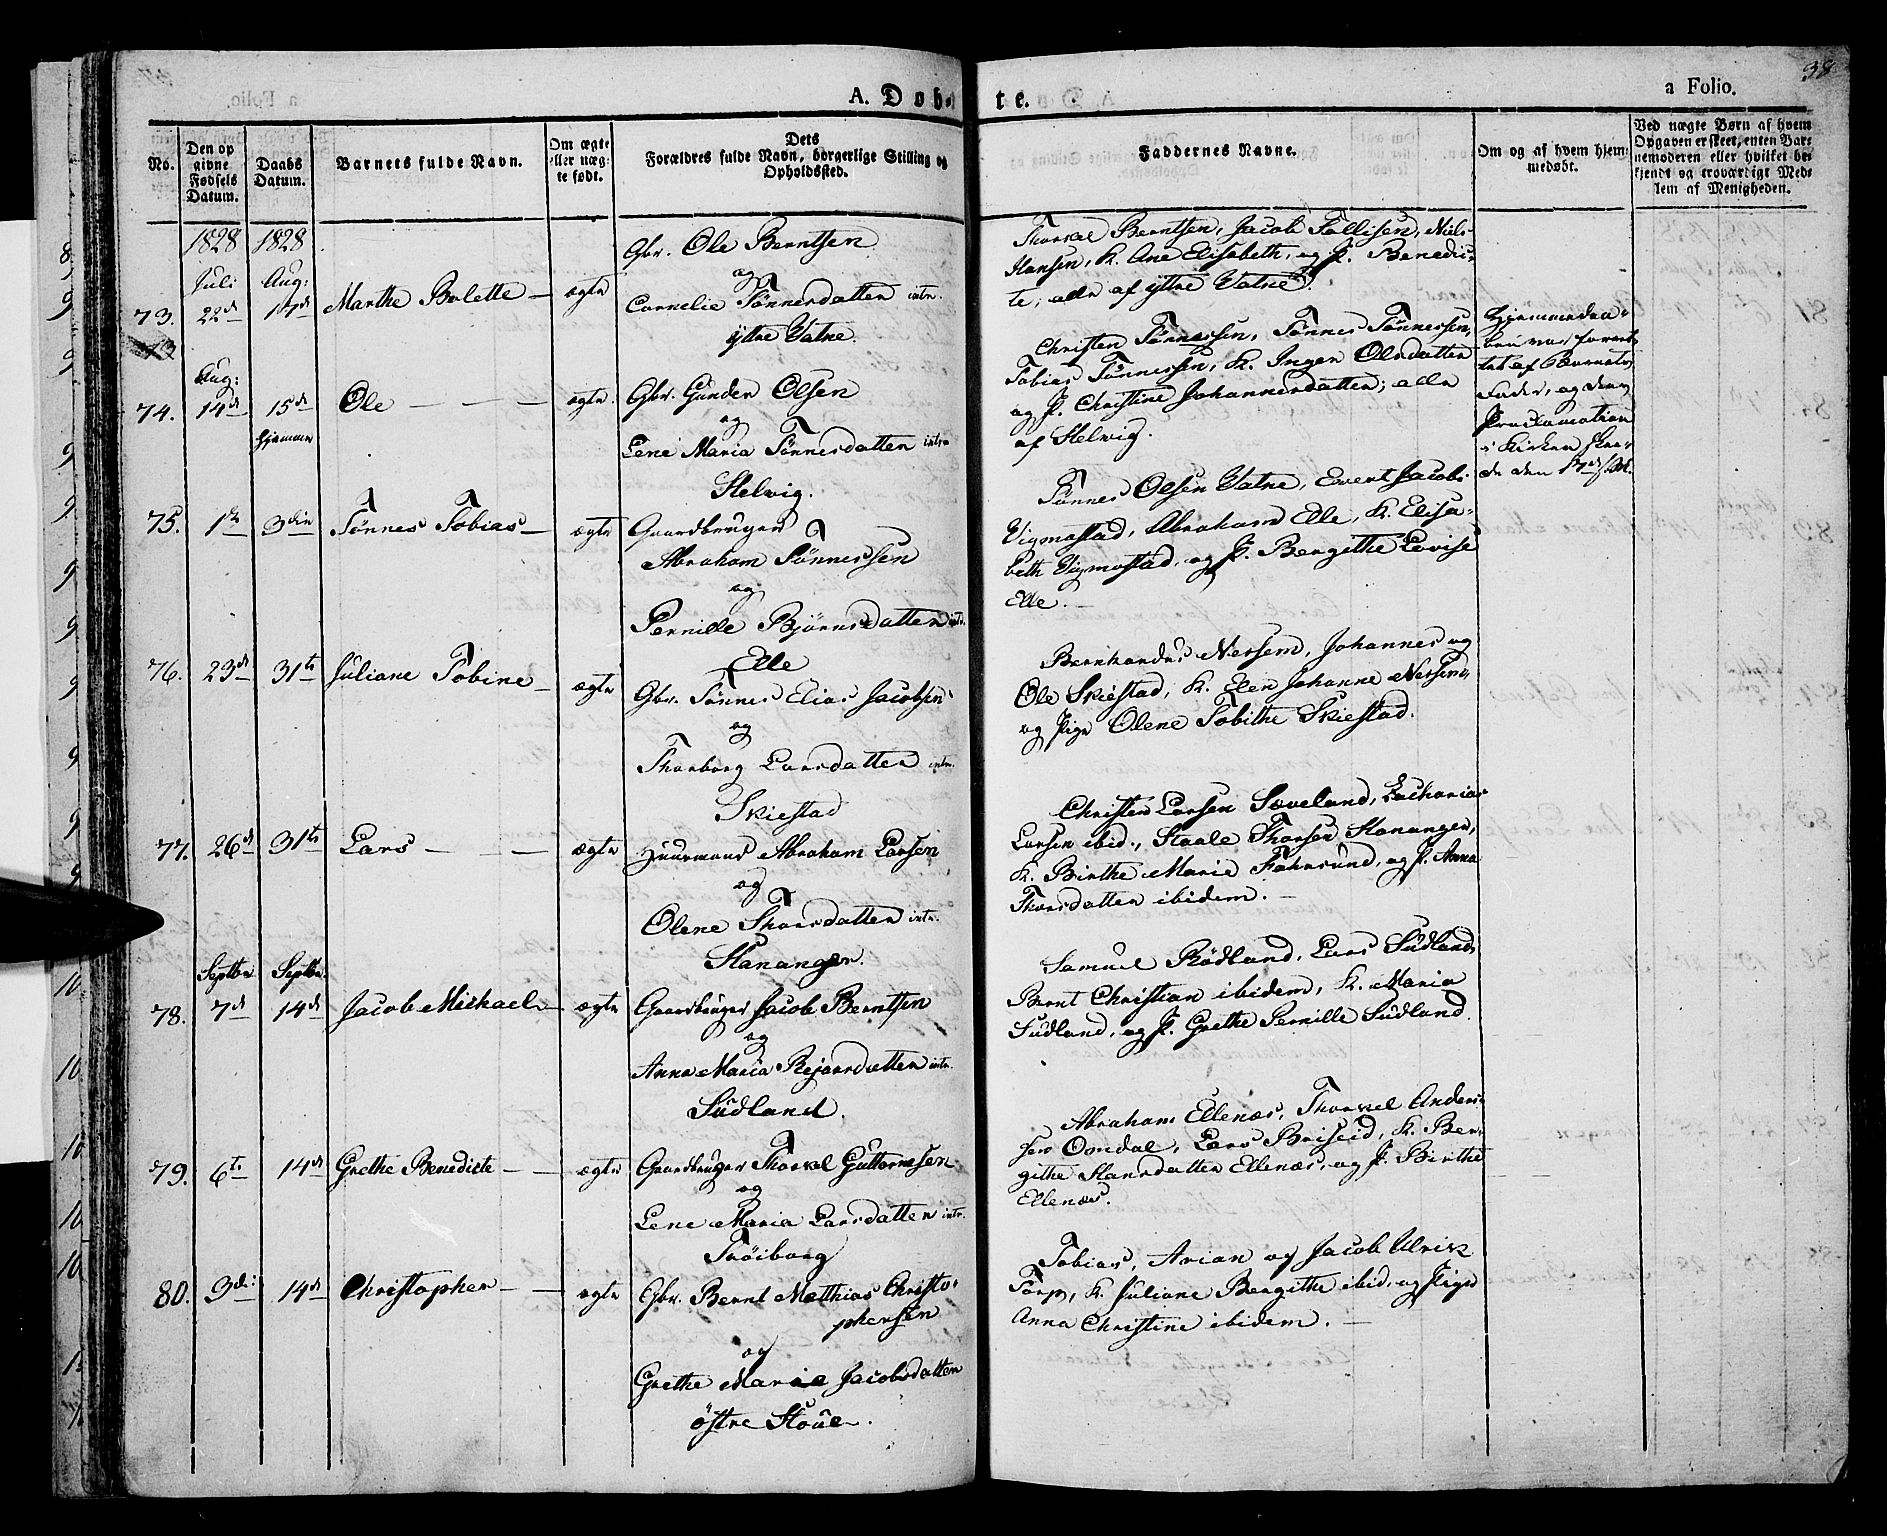 38
A. Døb-
te.
a Folio.
No.
Den op
givne
Fødsels
Datum.
Daabs
Datum.
Barnets fulde Navn.
Om ægte
eller uæg-
te født.
Dets
Forældres fulde Navn, borgerlige Stilling og
Opholdssted.
Faddernes Navne.
Om og af hvem hjem-
medøbt.
Ved uægte Børn af hvem
Opgaven er skeet, enten Bar-
nemoderen eller hvilket be-
kjendt og troværdigt Med-
lem af Menigheden.
1828
1828
Juli
Aug:
73.
22de
17de
Marthe Bolette —
ægte
Gbr. Ole Berntsen
og
Cornelie Tønnesdatter intr.
Yttre Vatne.
Thorkel Berntsen, Jacob Tollisen, Niels
Hansen, K. Ane Elisabeth, og P. Benedic-
te; alle af yttre Vatne.
Aug:
74.
14de
15de
hjemme
Ole — — —
ægte.
Gbr. Gunder Olsen
og
Lene Maria Tønnesdatter intr.
Helvig.
Christen Tønnessen, Tønnes Tønnessen,
Tobias Tønnessen, K. Inger Olsdatter
og P. Christine Johannesdatter; alle
af Helvig.
Hjemmedaa-
ben var forret-
tet af Barnets
Fader, og dens
Proclamation
i Kirken skee-
de den 17de
75.
1te
3die
Tønnes Tobias —
ægte
Gaardbruger
Abraham Tønnessen
og
Pernille Bjørnsdatter intr.
Elle
Tønnes Olsen Vatne, Evert Jacobs.
Vigmostad, Abraham Elle, K. Elisa-
beth Vigmostad, og P. Bergithe Lovise
Elle. —
76.
23de
31te
Juliane Tobine —
ægte
Gbr. Tønnes Elias Jacobsen
og
Thorborg Larsdatter intr.
Skiestad
Bernhardus Nersem, Johannes og
Ole Skiestad, K. Elen Johanne Nersem,
og Pige Olene Tobithe Skiestad.
77.
26de
31te
Lars — — —
ægte
Huusmand Abraham Larsen
og
Olene Thorsdatter intr.
Hananger.
Christen Larsen Sæveland, Zacharias
Larsen ibid., Staale Thorsen Hananger,
K. Birthe Marie Fahrsund, og P. Anna
Thorsdatter ibidem. —
Septbr
Septbr.
78.
7de
14de
Jacob Michael —
ægte
Gaardbruger Jacob Berntsen
og
Anna Maria Rejersdatter intr.
Sudland.
Samuel Rødland, Lars Sudland,
Bernt Christian ibidem, K. Maria
Sudland, og P. Grethe Pernille Sudland.
79.
6te
14de
Grethe Benedicte — —
ægte
Gaardbruger Thorkel Guttormsen
og
Lene Maria Larsdatter intr.
Trøiborg
Abraham Ellenæs, Thorkel Anders-
sen Omdal, Lars Briseid, K. Ber-
githe Hansdatter Ellenæs, og P. Birthe
Ellenæs.
80.
3die
14de
Christopher — —
ægte
Gbr. Bernt Matthias Christo-
phersen
og
Grethe Marie Jacobsdatter
østre Houe.
Tobias, Arian og Jacob Ulrik
Torp, K. Juliane Bergithe ibid. og Pige
Anna Christine ibidem. —